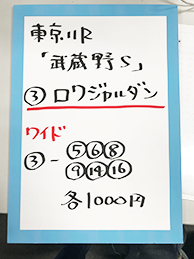 東京11R
「武蔵野S」
③ロワジャルダン
ワイド
③-⑤⑥⑧
⑨⑭⑯
各1000円